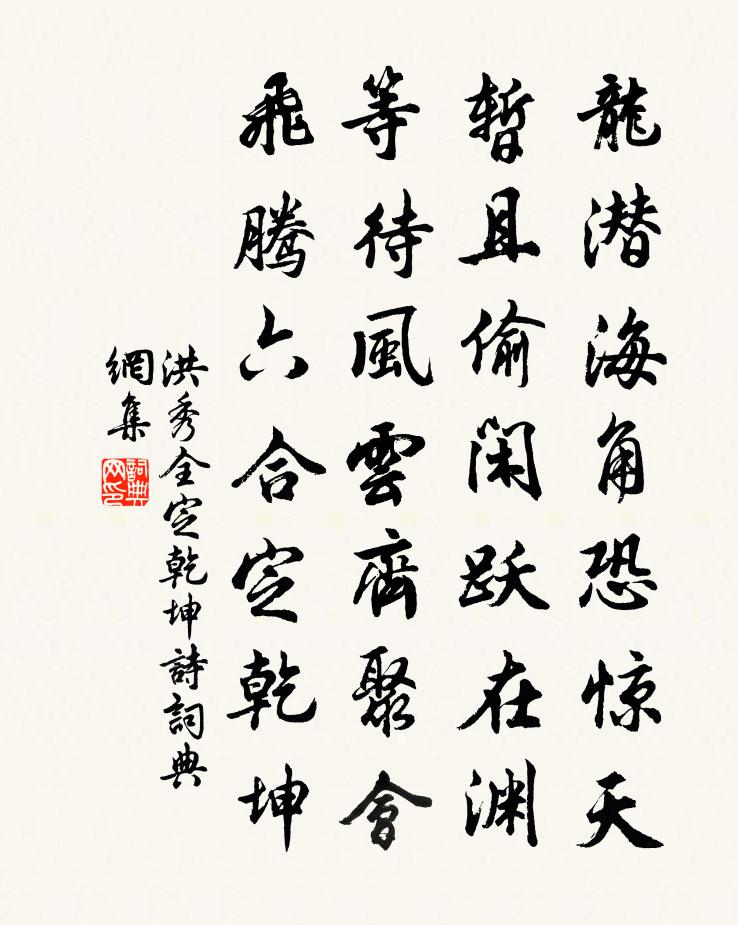 龍潜海角恐惊天
暫且偷闲跃在渊
等待風雲齊聚會
飛騰六合定乾坤
洪秀全定乾坤詩詞典
網集
詞典
网印